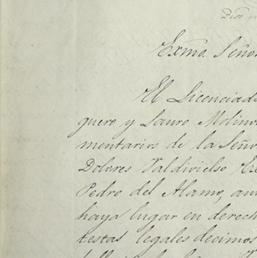 Exmo. Seño
El Licenciad
guero y Lauro Molino
mentario de la Seño
Dolores Valdivielso
Pedro del Alamo, an
haya lugar en derech
testas legales decimos